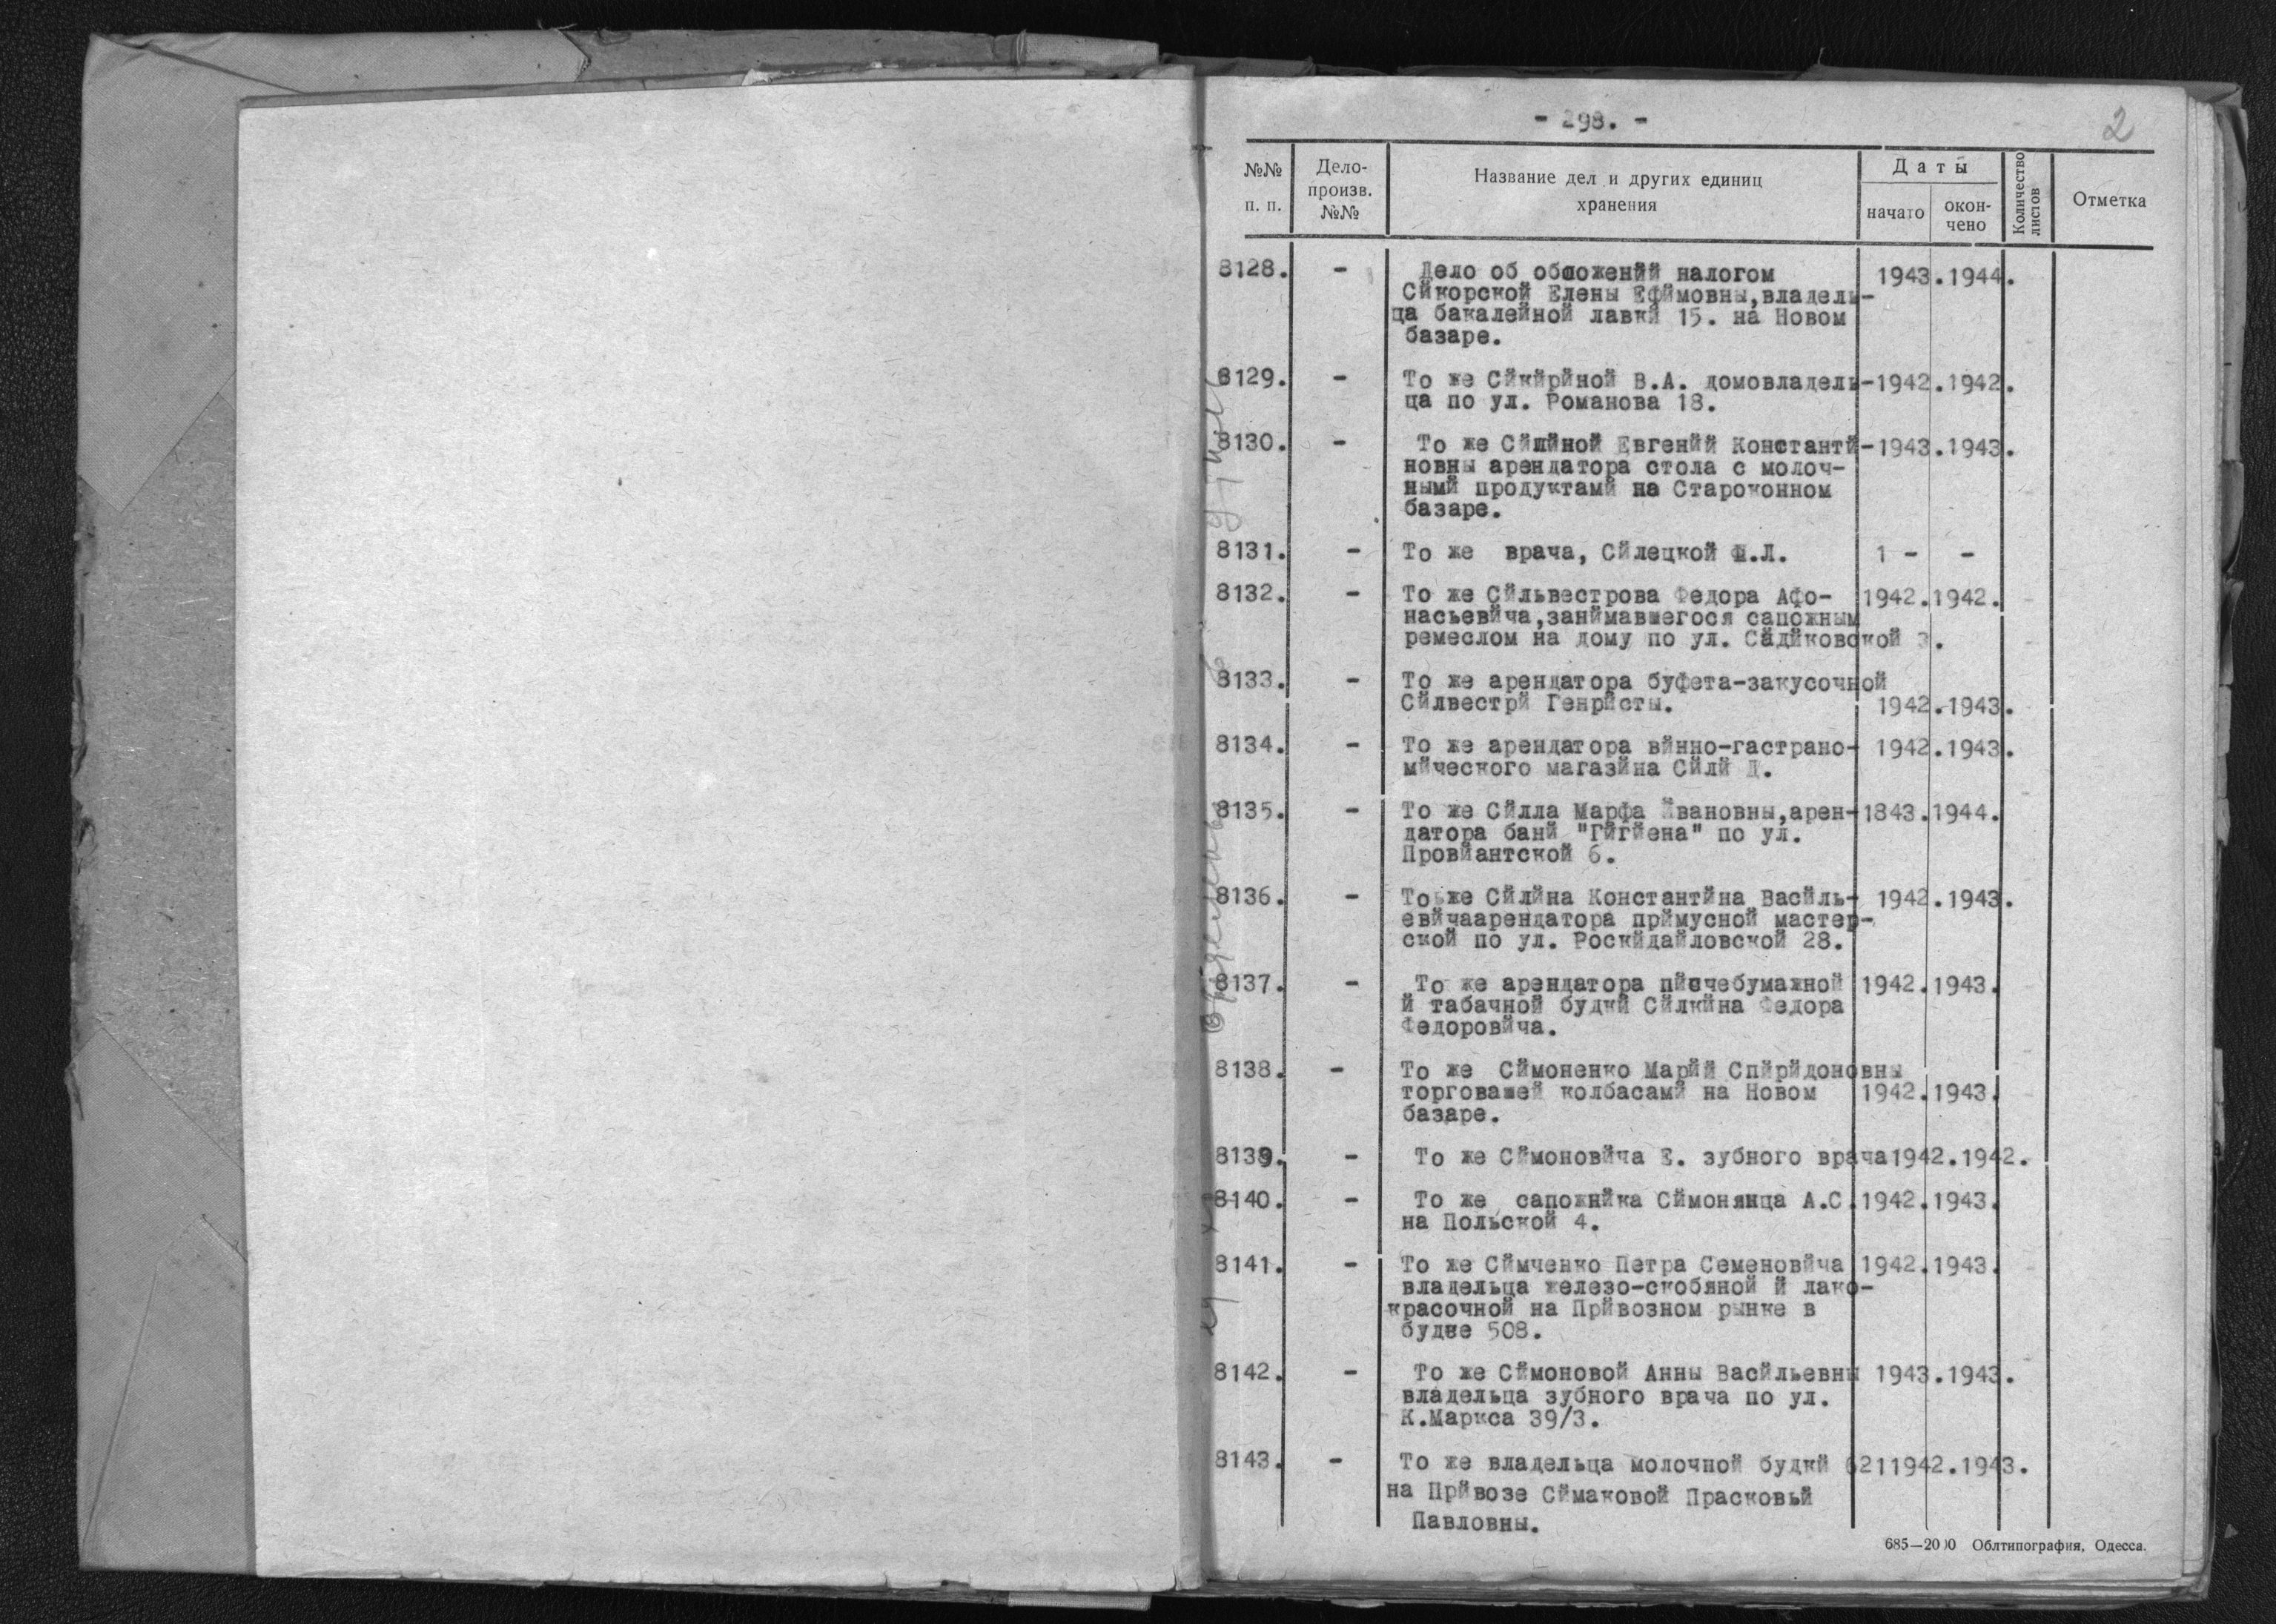 - 298. -
2
№№ п. п.
Дело-произв. №№
Название дел и других единиц хранения
Даты
начато
окон-чено
Количество листов
Отметка
8128. - Дело об обложений налогом 1943.1944.
Сйкорской Елены Ефймовны,владель-
ца бакалейной лавкй 15. на Новом
базаре.
8129. - То же Сйкйрйной В.А. домовладель-1942.1942.
ца по ул. Романова 18.
8130. - То же Сйлйной Евгенйй Константй-1943.1943.
новны арендатора стола с молоч-
нымй продуктамй на Староконном
базаре.
8131. - То же врача, Сйлецкой Ш.Л. 1 - -
8132. - То же Сйльвестрова Федора Афо- 1942.1942.
насьевйча,занймавшегося сапожным
ремеслом на дому по ул. Садйковской 3.
8133. - То же арендатора буфета-закусочной
Сйлвестрй Генрйсты. 1942.-1943.
8134. - То же арендатора вйнно-гастрано- 1942.1943.
мйческого магазйна Сйлй Д.
8135. - То же Сйлла Марфа Йвановны,арен-1843.1944.
датора банй "Гйгйена" по ул.
Провйантской 6.
8136. - То же Сйлйна Константйна Васйль- 1942.1943.
евйчаарендатора прймусной мастер-
ской по ул. Роскйдайловской 28.
8137. - То же арендатора пйсчебумажной 1942.1943.
й табачной будкй Сйлкйна Федора
Федоровйча.
8138. - То же Сймоненко Марйй Спйрйдоновны
торговашей колбасамй на Новом 1942.1943.
базаре.
8139. - То же Сймоновйча Е. зубного врача1942.1942.
8140. - То же сапожнйка Сймонянца А.С.1942.1943.
на Польской 4.
8141. - То же Сймченко Петра Семеновйча 1942.1943.
владельца железо-скобяной й лако-
красочной на Прйвозном рынке в
будке 508.
8142. - То же Сймоновой Анны Васйльевны 1943.1943.
владельца зубного врача по ул.
К.Маркса 39/3.
8143. - То же владельца молочной будкй 6211942.1943.
на Прйвозе Сймаковой Прасковьй
Павловны.
685—2000 Облтипография, Одесса.